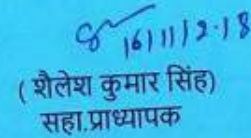 16/11/2018
(शैलेश कुमार सिंह)
सहा.प्राध्यापक